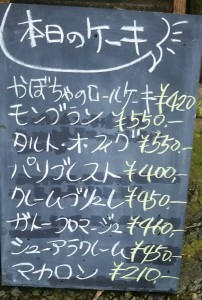 本日のケーキ
かぼちゃのロールケーキ ¥420
モンブラン ¥550.-
タルト・オ・フィグ ¥550.-
パリブレスト ¥400.-
クレームブリュレ ¥450.-
ガトーフロマージュ ¥460.-
シューアラクレーム ¥450.-
マカロン ¥210.-